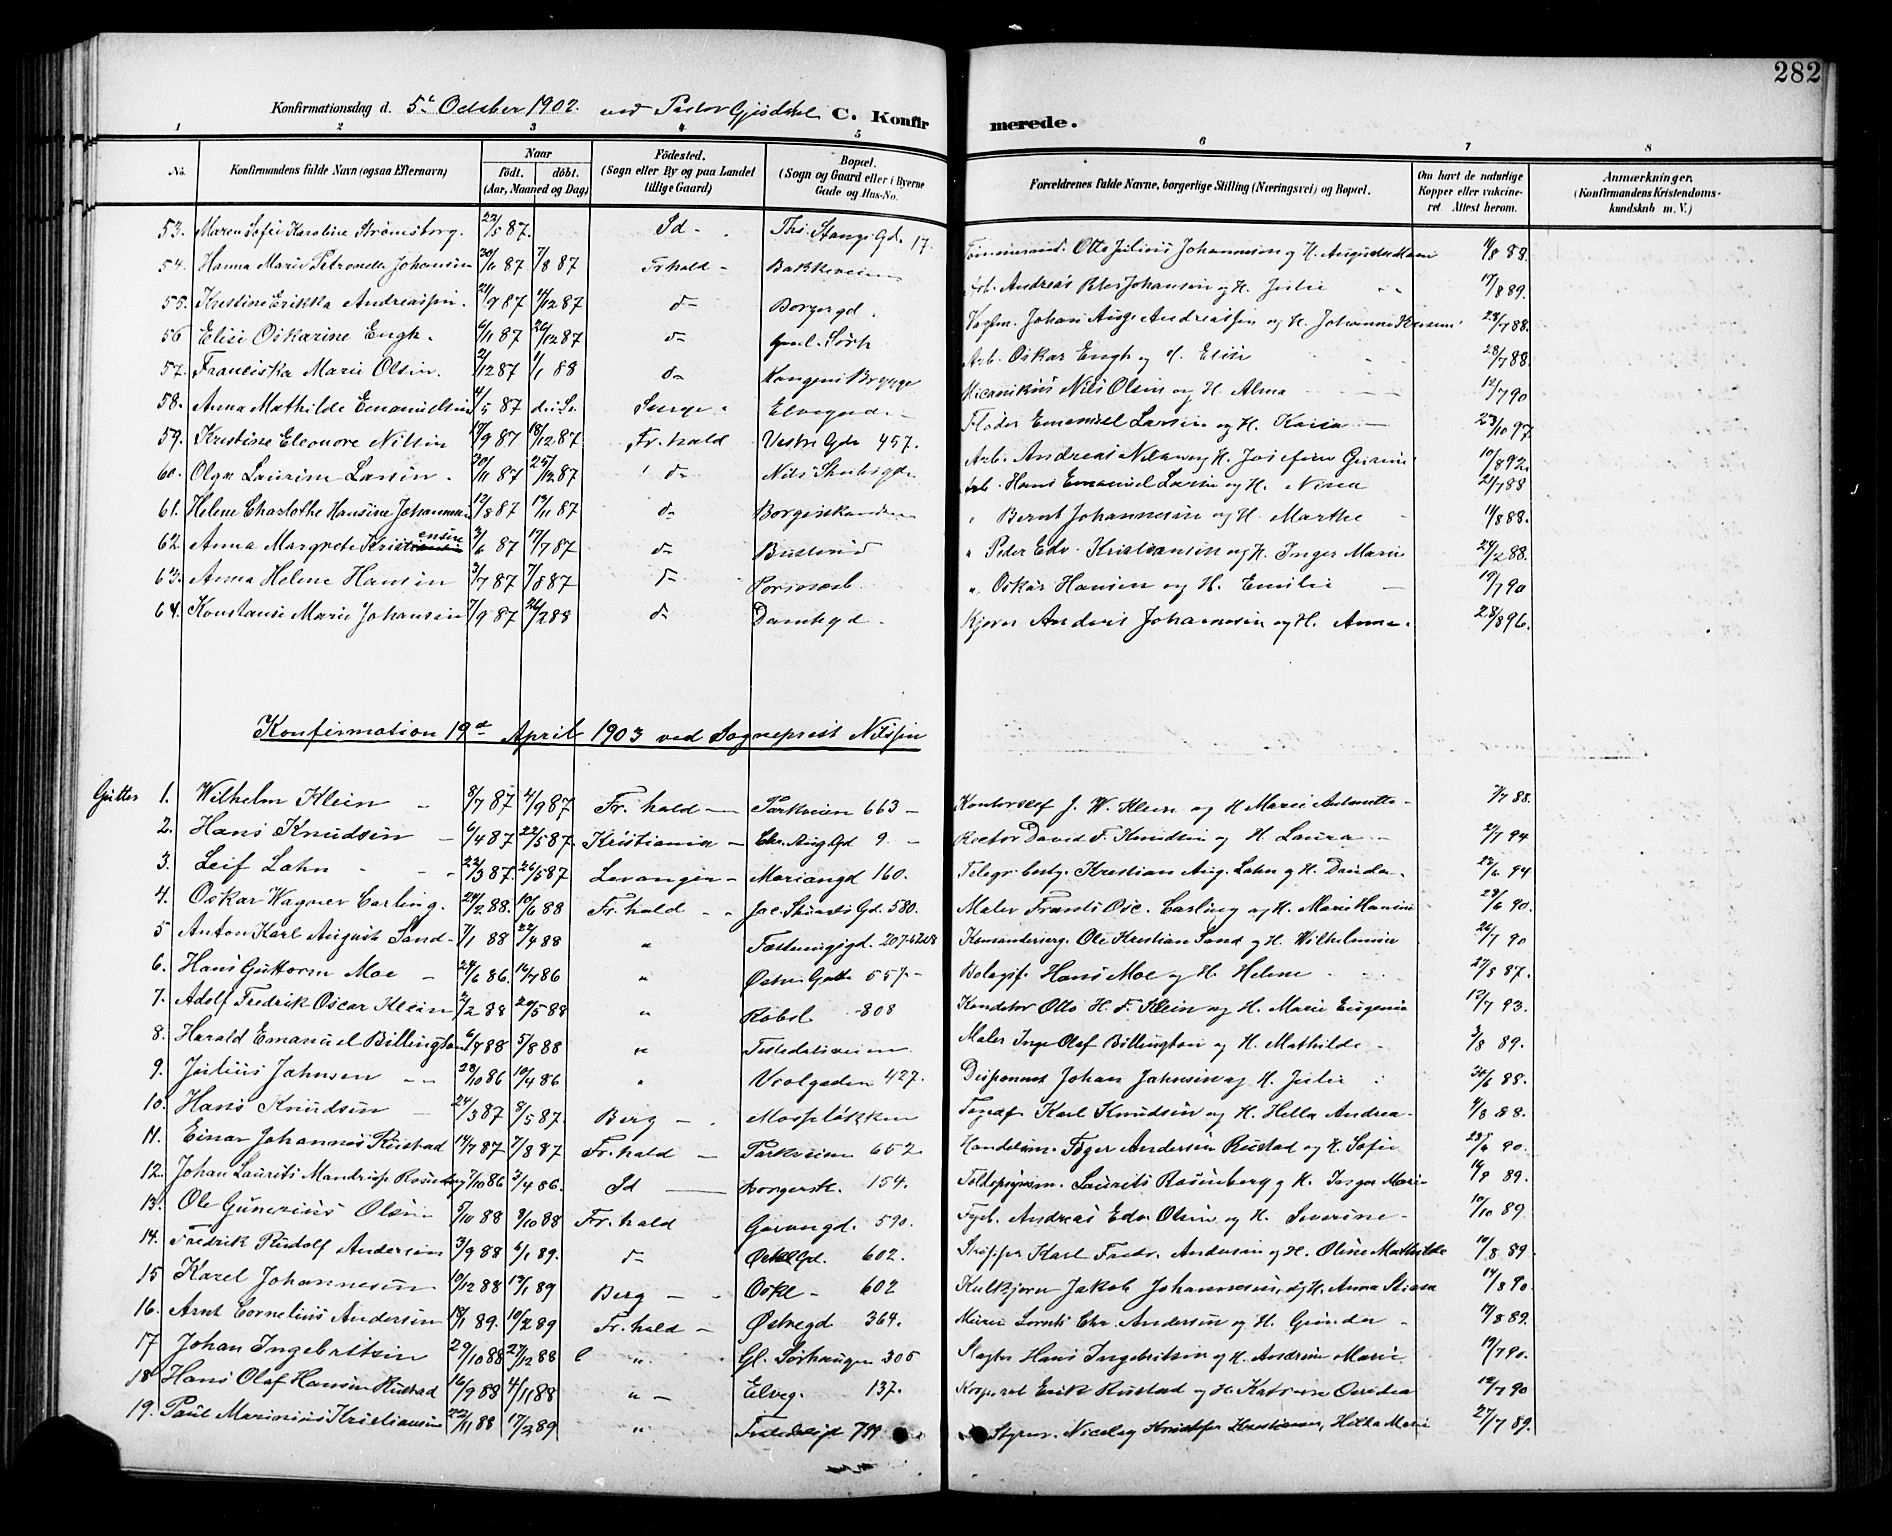 282
Konfirmationsdag d. 5t October 1902. ved Pastor Gjisdahl C. Konfir merede.
1 2 3 4 5 6 7 8
No. Konfirmandens fulde Navn (ogsaa Efternavn) Naar født. døbt. (Aar, Maaned og Dag) Fødested. (Sogn eller By og paa Landet tillige Gaard) Bopæl. (Sogn og Gaard eller i Byerne Gade og Hus-No. Forældrenes fulde Navne, borgerlige Stilling (Næringsvei) og Bopæl. Om havt de naturlige Kopper eller vakcineret Attest herom. Anmærkninger, (Konfirmandens Kristendomskundskab m. V.)
53. Maren Sofie Karoline Strømsborg. 22/5 87. Id - Ths. Stangs Gd. 17. Tømmermd. Otto Julius Johannesen og H. Augusta 11/8 88.
54. Hanna Marie Petronelle Johansen 30/6 87 7/8 87 Fr.hald - Bakkeveien Arb. Andreas Johansen og H. Julie 17/8 89.
55. Kristine Erikka Andreassen. 21/9 87 11/12 87 do Borgergd. Johan Aug. Andreassen og H. Johanne 23/7 88.
56 Elise Oskarine Engh. 6/11 87 26/12 87 do Arb. Oskar Engh og H. Elise 28/7 88.
57. Franciska Marie Olsen. 2/12 87 1/1 88 do Kongens Brygge Mecanikus Nils Olsen og H. Alma 12/7 90
58. Anna Mathilde Emanuelsen 4/5 87 Elvegaden - Fløder Emanuel Larsen og H. Kaisa - 23/10 97
59. Kristine Eleonore Nilsen 17/9 87 18/12 87 Fr.hald Vestre Gd. 457. Arb. Andreas Nilsen og H. Josefine 10/8 92.
60. Olga Laurine Larsen. 20/11 87 25/12 87 do Nils Stubsgd. Arb. Hans Emanuel Larsen og H. Nina 21/7 88
61. Helene Charlothe Hansine Johannesen 12/8 87 13/11 87 do Borgerskanden " Bernt Johannesen og H. Marthe 11/8 88.
62. Anna Margrete Kristensen 3/6 87 17/7 87 do " Peder Edv. Kristiansen og H. Inger Marie 24/2 88.
63. Anna Helene Hansen 3/7 87 7/8 87 do " Oskar Hansen og H. Emilie - 19/7 90
64. Konstanse Marie Johansen 7/9 87 26/2 88 do Damhgd. Kjører Anders Johannesen og H. Anna. 28/8 96.
Konfirmation 19d April 1903 ved Sogneprest Nilssen
Gutter 1. Wilhelm Klein 8/7 87 4/9 87 Fr.hald - Parkveien 663 - Kontorchef J. W. Klein og H. Marie Antonette - 7/7 88.
2. Hans Knudsen 6/4 87 22/5 87. Kristiania - Chr. Aug Gd 9. Rector David F. Knudsen og H. Laura - 2/7 94
3. Leif Lahn 22/3 87. 26/5 87. Levanger - Mariangd 160. Telegr. besty. Kristian Aug. Lahn og H. 22/6 94
4. Oskar Wagner Carling. 24/2 88. 10/6 88 Fr.hald Jac. Gd. 580. Maler Frants Osc. Carling og H. Marie Hansine 28/6 90.
5 Anton Karl August Sand 7/1 88 22/4 88 " Fæstningsgd. 207 Komandersg. Ole Kristian Sand og H. Wilhelmine 26/7 90
6. Hans Guttorm Moe 24/6 86. 14/7 86 " Østre Gade 557. Bolagsf. Hans Moe og H. Helene 27/8 87.
7. Adolf Fredrik Oscar Klein 2/2 88 20/5 88 " Røbel 808 Konditor Otto H. F. Klein og H. Marie Eugenie 12/7 93.
8. Harald Emanuel Billington 6/4 88 5/8 88 " Tistedalsveien Maler Inge Olaf Billington og H. Mathilde - 3/8 89.
9. Julius Jahnsen 28/10 86 10/4 86 " Violgaden 427. Disponent Johan Jahnsen og H. Julie 30/6 88.
10. Hans Knudsen 24/3 87 8/5 87. Berg - Mosseløkken Karl Knudsen og H. Hella Andrea. 4/8 88.
11. Einar Johannes Rustad 14/7 87 7/8 87 Fr.hald - Parkveien 652 Handelsm. Andersen Rustad og H. Sofie 90.
12. Johan Laurits Rosenberg 7/10 86 3/4 86. Id Borgersk. 154. Laurits Rosenberg og H. Inger Marie 14/9 89.
13. Ole Gunerius Olsen 5/10 88 8/10 88 Fr.hald 590. Andreas Edv. Olsen og H. Severine - 10/10 89
14. Fredrik Rudolf Andersen 3/9 88 6/1 89. do 602. Skipper Karl Fredr. Andersen og H. Oline Mathilde 10/8 89
15 Karel Johannesen 10/12 88 13/1 89 Berg - 602 Kulkjører Jakob Johannesen, og H. Anna 14/8 90.
16. Arnt Cornelius Andersen 18/1 89. 10/2 89 Fr.hald - Østregd 364. Murer Lornts Chr. Andersen og H. Gunda 17/8 89.
17 Johan Ingebritsen 29/10 88 27/12 88 " Gl. Sørhaugen 305 Slagter Hans Ingebritsen og H. Andrine Marie 19/7 90.
18 Hans Olaf Hansen Rustad 16/9 88 4/11 88 " - Elveg. 137. Korporal Erik Rustad og H. Katrine 12/7 90
19. Paul Marinius Kristiansen 22/11 88 17/2 89 " 799 Styrm. Nicolay Kristofer Kristiansen, Hilda Marie 27/7 89.